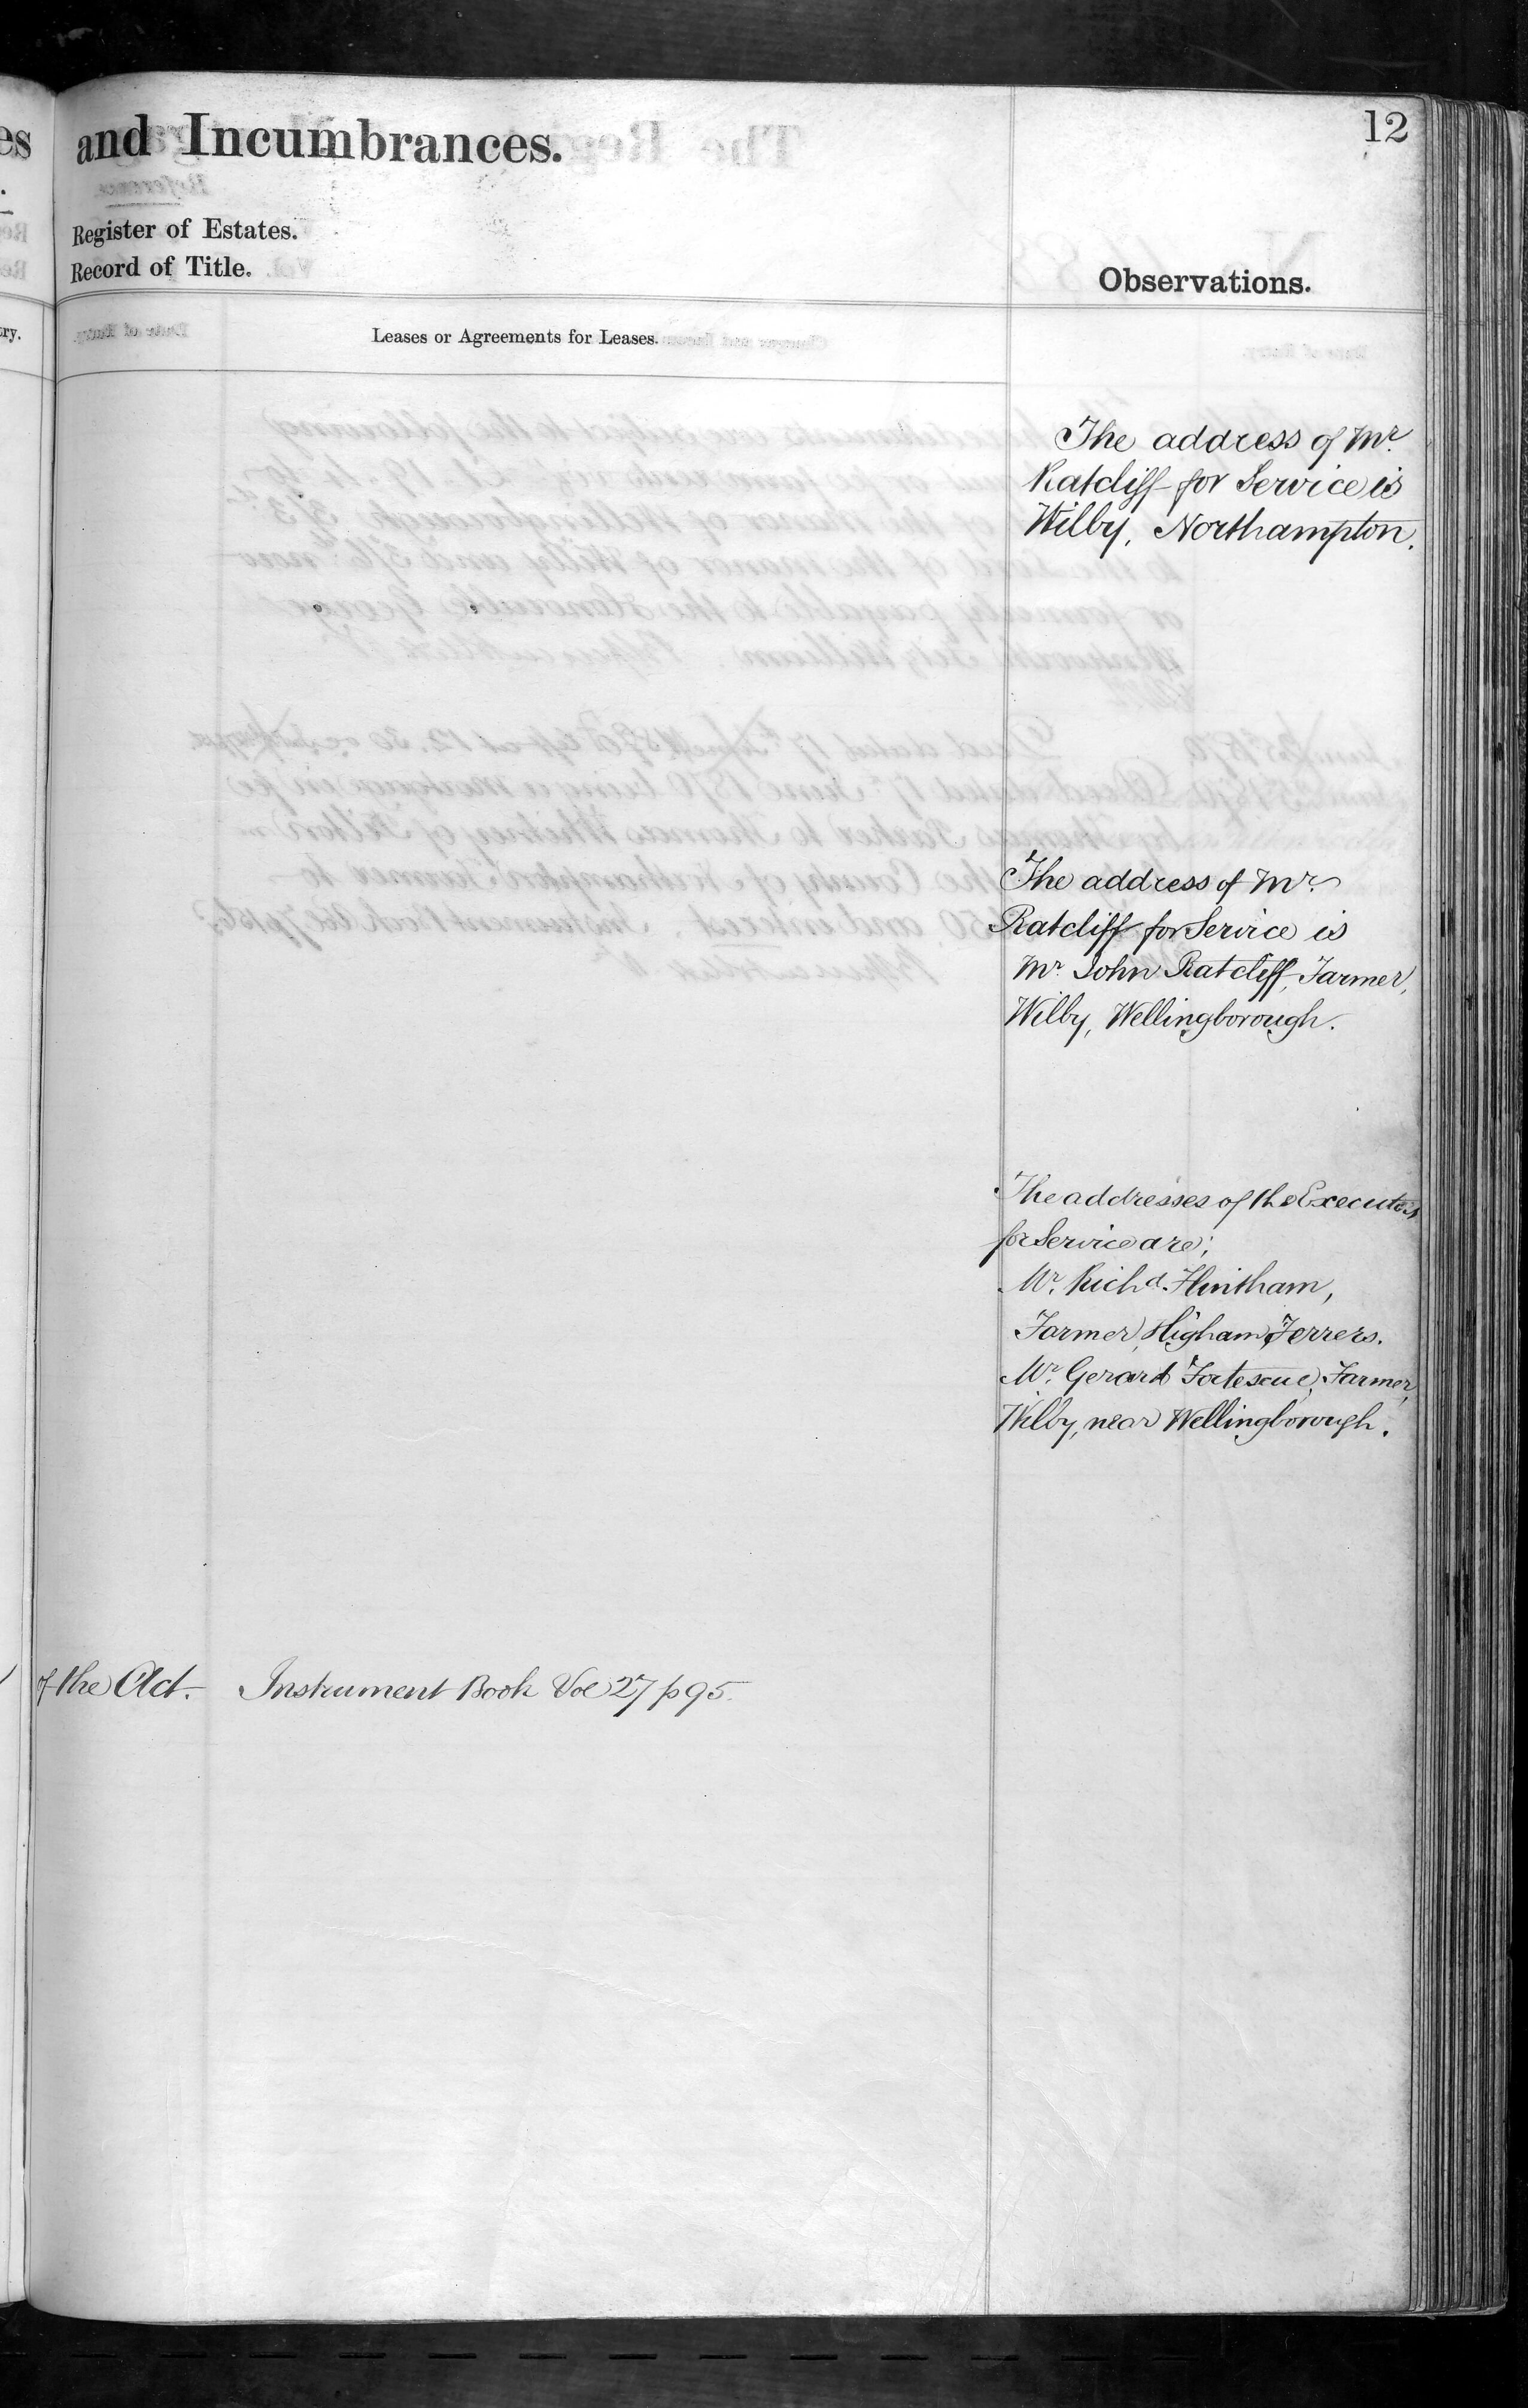 12
and Incumbrances.
Register of Estates.
Record of Title.
Observations.
Leases or Agreements for Leases.
The address of Mr.
Ratcliff for Service is
Wilby, Northampton.
The address of Mr.
Ratcliff for Service is
Mr. John Ratcliff, Farmer,
Wilby, Wellingborough.
The addresses of the Executors
for Service are;
Mr. Richd. Flintham,
Farmer, Higham Ferrers.
Mr. Gerard Fortescue, Farmer,
Wilby, near Wellingborough.
of the Act. Instrument Book Vol 27 p 95.